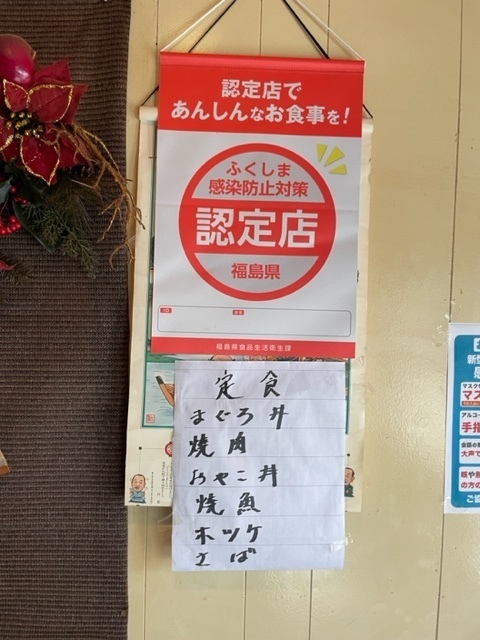 認定店で
あんしんなお食事を!
ふくしま
感染防止対策
認定店
福島県
福島県食品生活衛生課
定食
まぐろ丼
焼肉
おやこ丼
焼魚
ホッケ
さば
新型
マスク
手指
大声で
の方の